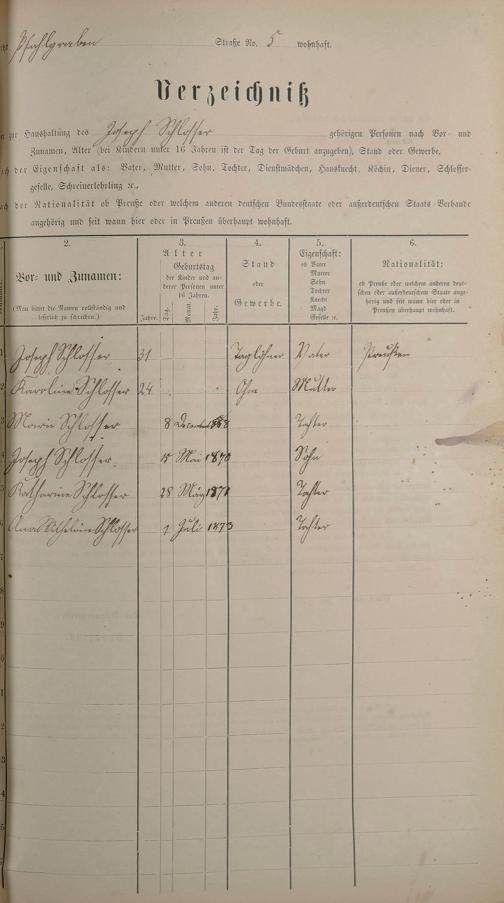 Pfahlgraben Straße No. 5 wohnhaft.
Verzeichniß
zur Haushaltung des Joseph Schlosser gehörigen Personen nach Vor- und
Zunamen, Alter (bei Kindern unter 16 Jahren ist der Tag der Geburt anzugeben), Stand oder Gewerbe,
der Eigenschaft als: Vater, Mutter, Sohn, Tochter, Dienstmädchen, Hausknecht, Köchin, Diener, Schlosser-
geselle, Schreinerlehrling ꝛc.,
der Nationalität ob Preuße oder welchem anderen deutschen Bundesstaate oder außerdeutschen Staats-Verbande
angehörig und seit wann hier oder in Preußen überhaupt wohnhaft.
2. 3. 4. 5. 6.
Vor- und Zunamen:
(Man bittet die Namen vollständig und
leserlich zu schreiben.)
Alter
Geburtstag
der Kinder und an-
derer Personen unter
16 Jahren.
Jahre. Tag. Monat. Jahr.
Stand
oder
Gewerbe.
Eigenschaft:
ob Vater
Mutter
Sohn
Tochter
Knecht
Magd
Geselle ꝛc.
Nationalität:
ob Preuße oder welchem anderen deut-
schen oder außerdeutschem Staate ange-
hörig und seit wann hier oder in
Preußen überhaupt wohnhaft.
1 Joseph Schlosser 31 Taglöhner Vater Preußen
2 Karoline Schlosser 24 Ohne Mutter
3 Marie Schlosser 8 December 1868 Tochter
4 Joseph Schlosser 15 Mai 1870 Sohn
5 Katharine Schlosser 28 März 1871 Tochter
6 Ana Wilhelmine Schlosser 1 Juli 1873 Tochter
7
8
9
0
1
2
3
4
5